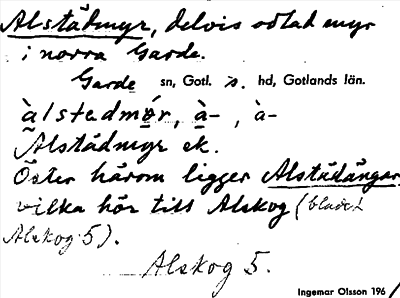 Alstädmyr, delvis odlad myr
i norra Garde.
Garde sn, Gotl. s. hd, Gotlands län.
àlstedmọ́r, à- , à-
Alstädmyr ek.
Öster härom ligger Alstädängar
vilka hör till Alskog (bladet
Alskog 5).
Alskog 5.
Ingemar Olsson 196